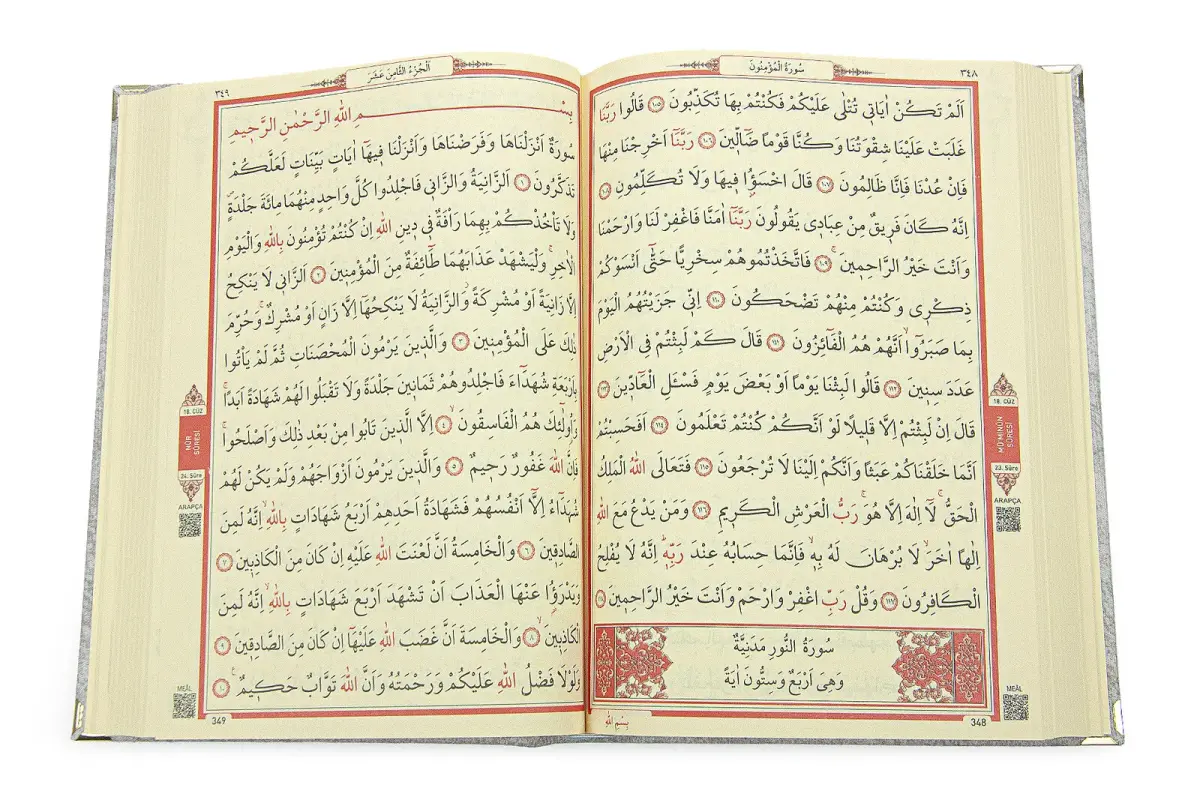 سُورَةُ الْمُؤْمِنُونَ
٣٤٨
اَلَمْ تَكُنْ اٰيَاتٖي تُتْلٰى عَلَيْكُمْ فَكُنْتُمْ بِهَا تُكَذِّبُونَ ﴿١٠٥﴾ قَالُوا رَبَّنَا
غَلَبَتْ عَلَيْنَا شِقْوَتُنَا وَكُنَّا قَوْمًا ضَٓالّٖينَ ﴿١٠٦﴾ رَبَّنَٓا اَخْرِجْنَا مِنْهَا
فَاِنْ عُدْنَا فَاِنَّا ظَالِمُونَ ﴿١٠٧﴾ قَالَ اخْسَؤُ۫ا فٖيهَا وَلَا تُكَلِّمُونِ ﴿١٠٨﴾
اِنَّهُ كَانَ فَرٖيقٌ مِنْ عِبَادٖي يَقُولُونَ رَبَّنَٓا اٰمَنَّا فَاغْفِرْ لَنَا وَارْحَمْنَا
وَاَنْتَ خَيْرُ الرَّاحِمٖينَۚ ﴿١٠٩﴾ فَاتَّخَذْتُمُوهُمْ سِخْرِيًّا حَتّٰٓى اَنْسَوْكُمْ
ذِكْرٖي وَكُنْتُمْ مِنْهُمْ تَضْحَكُونَ ﴿١١٠﴾ اِنّٖي جَزَيْتُهُمُ الْيَوْمَ
بِمَا صَبَرُٓوا اَنَّهُمْ هُمُ الْفَٓائِزُونَ ﴿١١١﴾ قَالَ كَمْ لَبِثْتُمْ فِي الْاَرْضِ
عَدَدَ سِنٖينَ ﴿١١٢﴾ قَالُوا لَبِثْنَا يَوْمًا اَوْ بَعْضَ يَوْمٍ فَسْـَٔلِ الْعَٓادّٖينَ ﴿١١٣﴾
قَالَ اِنْ لَبِثْتُمْ اِلَّا قَلٖيلًا لَوْ اَنَّكُمْ كُنْتُمْ تَعْلَمُونَ ﴿١١٤﴾ اَفَحَسِبْتُمْ
اَنَّمَا خَلَقْنَاكُمْ عَبَثًا وَاَنَّكُمْ اِلَيْنَا لَا تُرْجَعُونَ ﴿١١٥﴾ فَتَعَالَى اللّٰهُ الْمَلِكُ
الْحَقُّۚ لَٓا اِلٰهَ اِلَّا هُوَۚ رَبُّ الْعَرْشِ الْكَرٖيمِ ﴿١١٦﴾ وَمَنْ يَدْعُ مَعَ اللّٰهِ
اِلٰهًا اٰخَرَۙ لَا بُرْهَانَ لَهُ بِهٖۙ فَاِنَّمَا حِسَابُهُ عِنْدَ رَبِّهٖؕ اِنَّهُ لَا يُفْلِحُ
الْكَافِرُونَ ﴿١١٧﴾ وَقُلْ رَبِّ اغْفِرْ وَارْحَمْ وَاَنْتَ خَيْرُ الرَّاحِمٖينَ ﴿١١٨﴾
سُورَةُ النُّورِ مَدَنِيَّةٌ
وَهِيَ اَرْبَعٌ وَسِتُّونَ اٰيَةً
بِسْمِ اللّٰهِ
348
18. CÜZ
MÜ'MİNÛN SÛRESİ
23. Sûre
ARAPÇA
MEÂL
اَلْجُزْءُ الثَّامِنُ عَشَرَ
٣٤٩
بِسْمِ اللّٰهِ الرَّحْمٰنِ الرَّحٖيمِ
سُورَةٌ اَنْزَلْنَاهَا وَفَرَضْنَاهَا وَاَنْزَلْنَا فٖيهَٓا اٰيَاتٍ بَيِّنَاتٍ لَعَلَّكُمْ
تَذَكَّرُونَ ﴿١﴾ اَلزَّانِيَةُ وَالزَّانٖي فَاجْلِدُوا كُلَّ وَاحِدٍ مِنْهُمَا مِائَةَ جَلْدَةٍۖ
وَلَا تَأْخُذْكُمْ بِهِمَا رَأْفَةٌ فٖي دٖينِ اللّٰهِ اِنْ كُنْتُمْ تُؤْمِنُونَ بِاللّٰهِ وَالْيَوْمِ
الْاٰخِرِۚ وَلْيَشْهَدْ عَذَابَهُمَا طَٓائِفَةٌ مِنَ الْمُؤْمِنٖينَ ﴿٢﴾ اَلزَّانٖي لَا يَنْكِحُ
اِلَّا زَانِيَةً اَوْ مُشْرِكَةًۘ وَالزَّانِيَةُ لَا يَنْكِحُهَٓا اِلَّا زَانٍ اَوْ مُشْرِكٌۚ وَحُرِّمَ
ذٰلِكَ عَلَى الْمُؤْمِنٖينَ ﴿٣﴾ وَالَّذٖينَ يَرْمُونَ الْمُحْصَنَاتِ ثُمَّ لَمْ يَأْتُوا
بِاَرْبَعَةِ شُهَدَٓاءَ فَاجْلِدُوهُمْ ثَمَانٖينَ جَلْدَةً وَلَا تَقْبَلُوا لَهُمْ شَهَادَةً اَبَدًاۚ
وَاُو۬لٰٓئِكَ هُمُ الْفَاسِقُونَۙ ﴿٤﴾ اِلَّا الَّذٖينَ تَابُوا مِنْ بَعْدِ ذٰلِكَ وَاَصْلَحُواۚ
فَاِنَّ اللّٰهَ غَفُورٌ رَحٖيمٌ ﴿٥﴾ وَالَّذٖينَ يَرْمُونَ اَزْوَاجَهُمْ وَلَمْ يَكُنْ لَهُمْ
شُهَدَٓاءُ اِلَّٓا اَنْفُسُهُمْ فَشَهَادَةُ اَحَدِهِمْ اَرْبَعُ شَهَادَاتٍ بِاللّٰهِۙ اِنَّهُ لَمِنَ
الصَّادِقٖينَ ﴿٦﴾ وَالْخَامِسَةُ اَنَّ لَعْنَتَ اللّٰهِ عَلَيْهِ اِنْ كَانَ مِنَ الْكَاذِبٖينَ ﴿٧﴾
وَيَدْرَؤُ۬ا عَنْهَا الْعَذَابَ اَنْ تَشْهَدَ اَرْبَعَ شَهَادَاتٍ بِاللّٰهِۙ اِنَّهُ لَمِنَ
الْكَاذِبٖينَۙ ﴿٨﴾ وَالْخَامِسَةَ اَنَّ غَضَبَ اللّٰهِ عَلَيْهَٓا اِنْ كَانَ مِنَ الصَّادِقٖينَ ﴿٩﴾
وَلَوْلَا فَضْلُ اللّٰهِ عَلَيْكُمْ وَرَحْمَتُهُ وَاَنَّ اللّٰهَ تَوَّابٌ حَكٖيمٌۚ ﴿١٠﴾
349
18. CÜZ
NÛR SÛRESİ
24. Sûre
ARAPÇA
MEÂL